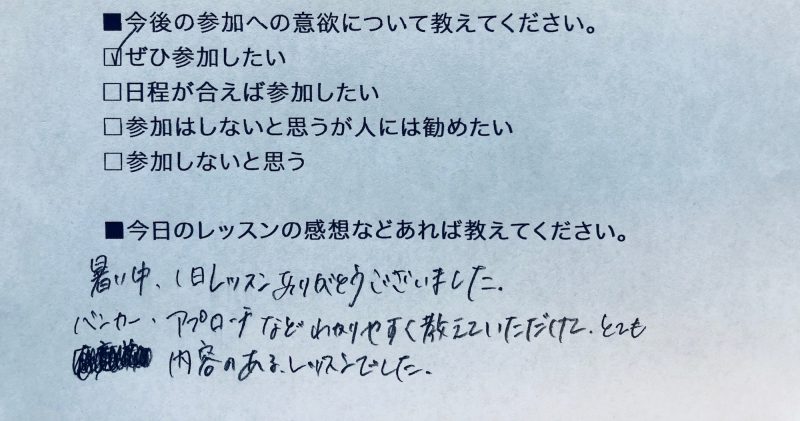 ■今後の参加への意欲について教えてください。
☑ぜひ参加したい
□日程が合えば参加したい
□参加はしないと思うが人には勧めたい
□参加しないと思う
■今日のレッスンの感想などあれば教えてください。
暑い中、1日レッスンありがとうございました。
バンカー、アプローチなどわかりやすく教えていただけて、とても
内容のある、レッスンでした。